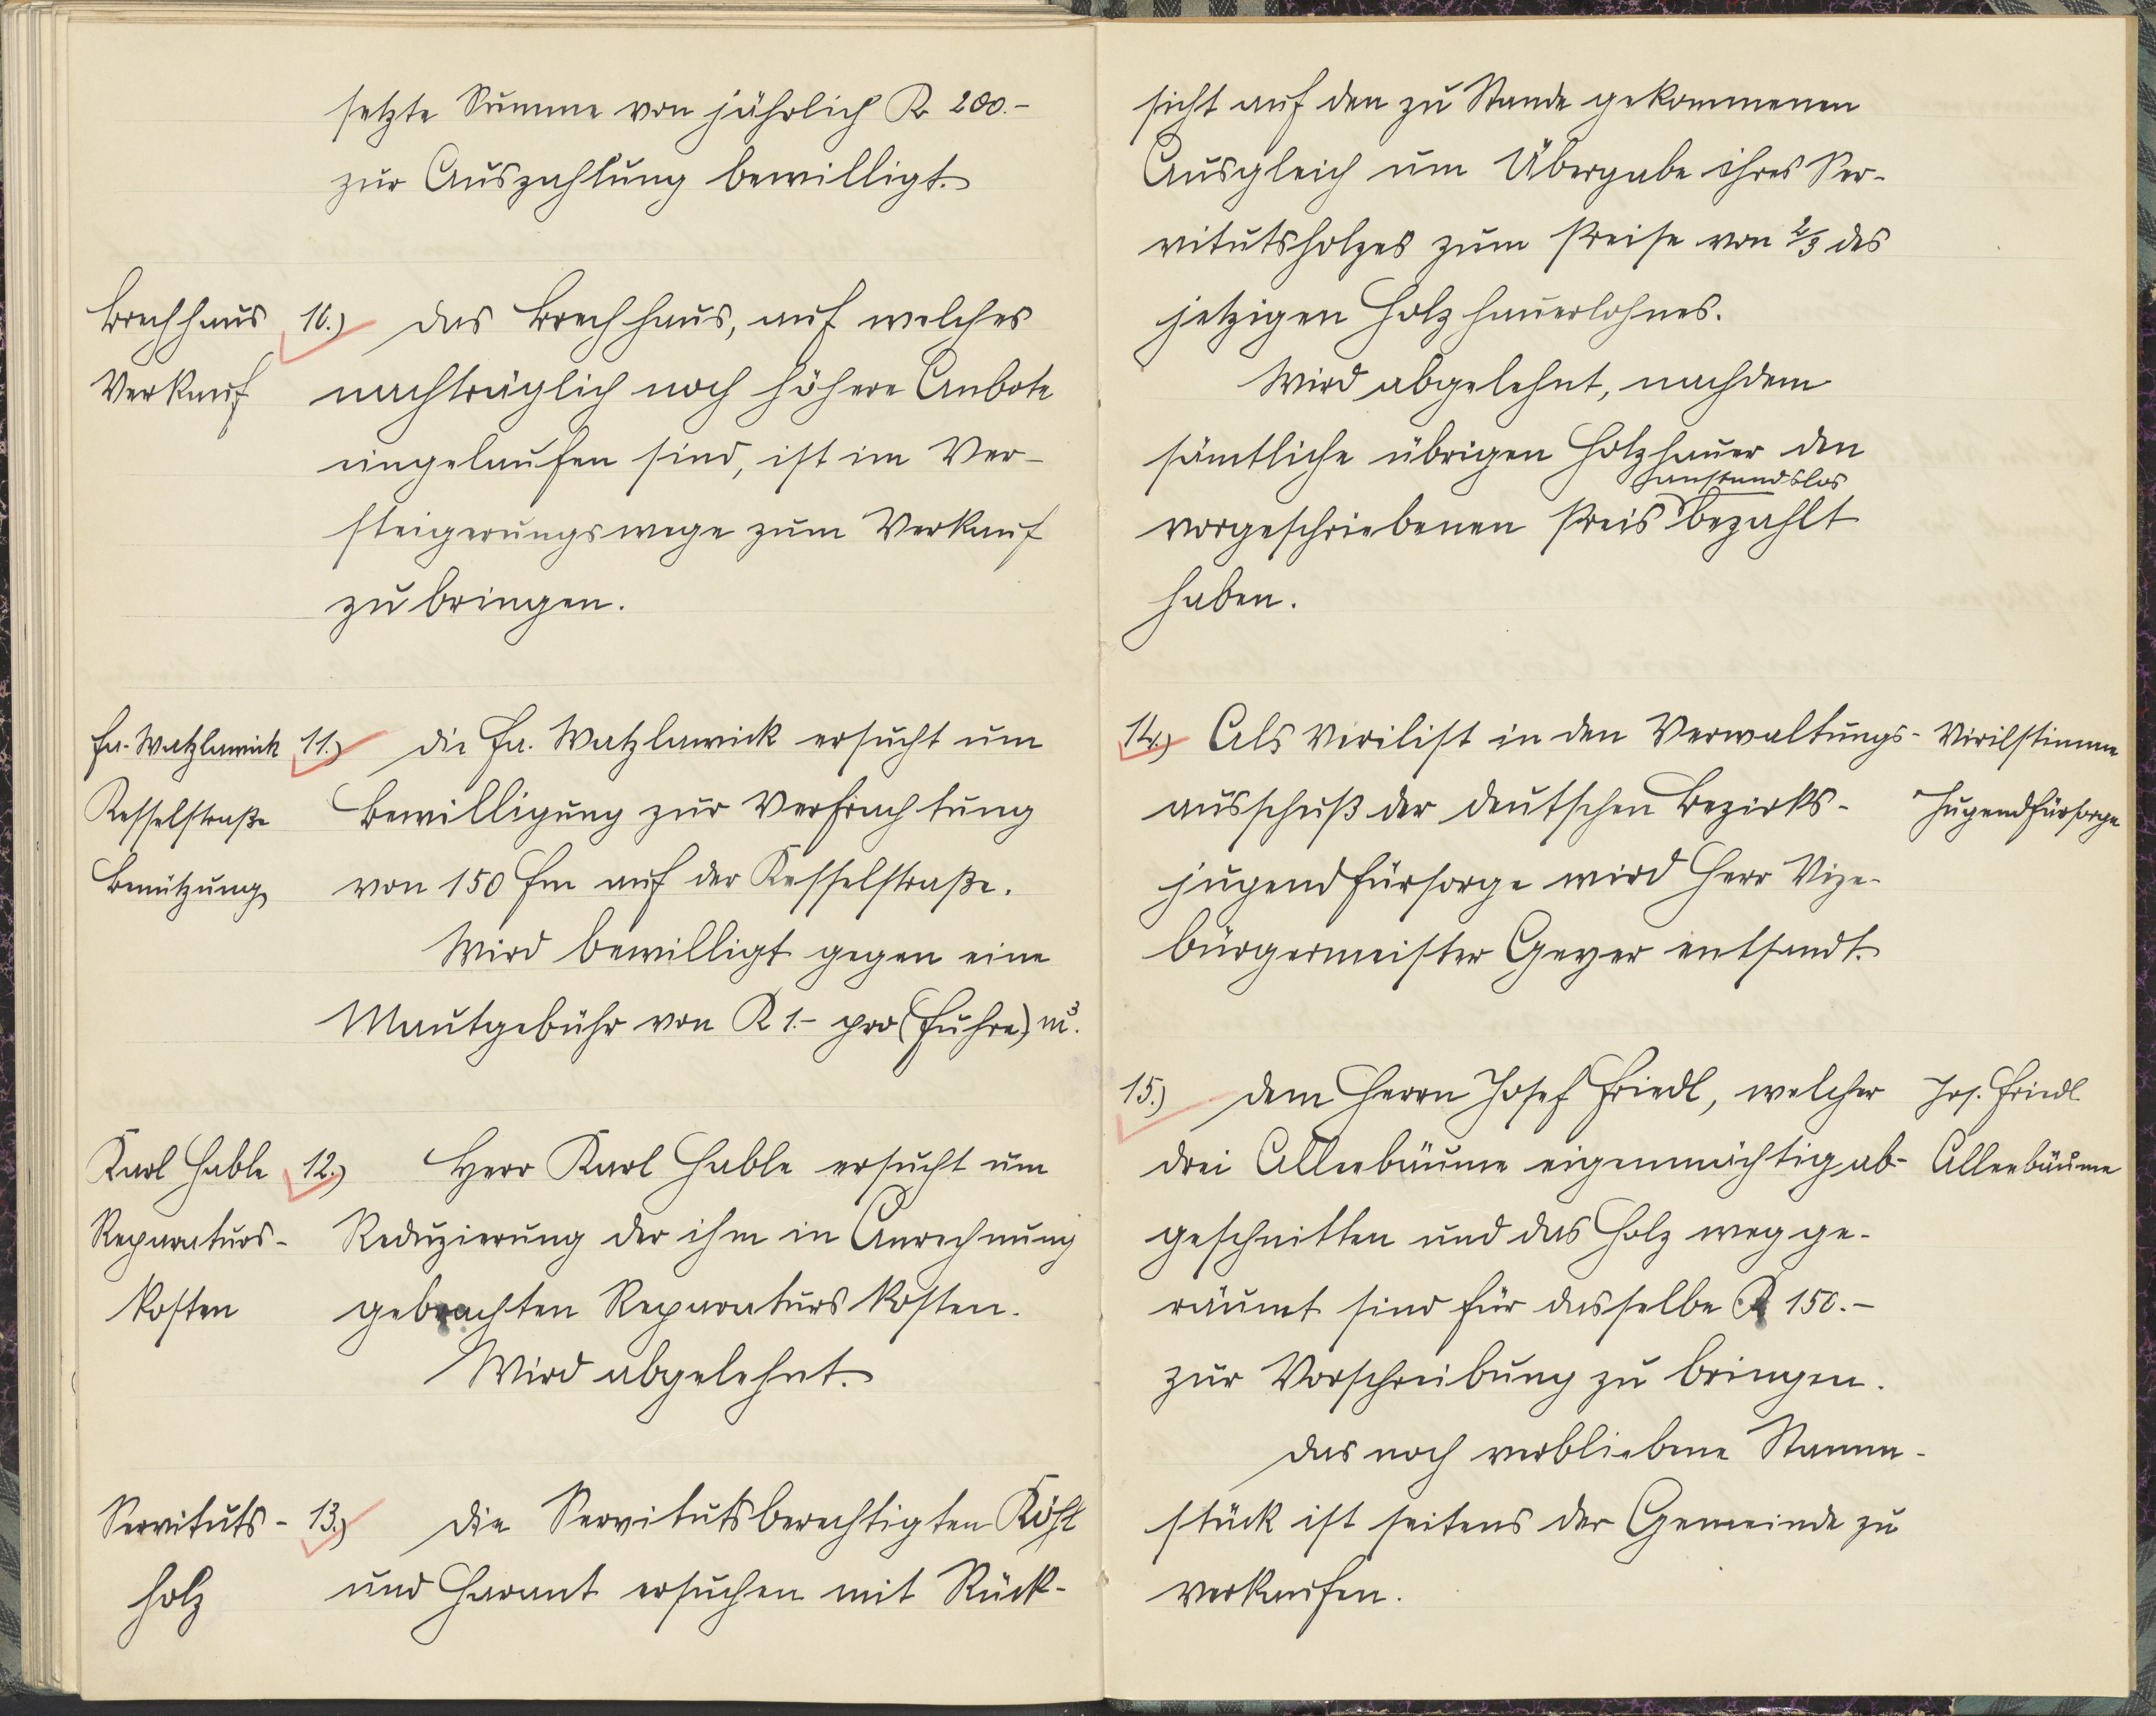 setzte Summe von jährlich K 200.-
zur Auszahlung bewilligt.
Brechhaus 10.) Das Brechhaus, auf welches
Verkauf nachträglich noch höhere Anbote
eingelaufen sind, ist im Ver-
steigerungswege zum Verkauf
zu bringen.
Fa. Watzlawick 11.) Die Fa. Watzlawick ersucht um
Kesselstraße Bewilligung zur Verfrachtung
Benützung von 150 fm auf der Kesselstraße.
Wird bewilligt gegen eine
Mautgebühr von K 1.- pro (Fuhre) m³.
Karl Hable 12.) Herr Karl Hable ersucht um
Reparaturs- Reduzierung der ihm in Anrechnung
kosten gebrachten Reparaturskosten.
Wird abgelehnt.
Servituts- 13.) Die Servitutsberechtigten Köhl
holz und Harant ersuchen mit Rück-
sicht auf den zu Stande gekommenen
Ausgleich um Übergabe ihres Ser-
vitutsholzes zum Preise von 2/3 des
jetzigen Holzhauerlohnes.
Wird abgelehnt, nachdem
sämtliche übrigen Holzhauer den
anstandslos
vorgeschriebenen Preis bezahlt
haben.
14.) Als Virilist in den Verwaltungs- Virilstimme
ausschuß der deutschen Bezirks- Jugendfürsorge
jugendfürsorge wird Herr Vize-
bürgermeister Geyer entsandt.
15.) Dem Herrn Josef Friedl, welcher Jos. Friedl
drei Alleebäume eigenmächtig ab- Alleebäume
geschnitten und das Holz wegge-
räumt sind für dasselbe K 150.-
zur Vorschreibung zu bringen.
Das noch verbliebene Stamm-
stück ist seitens der Gemeinde zu
verkaufen.